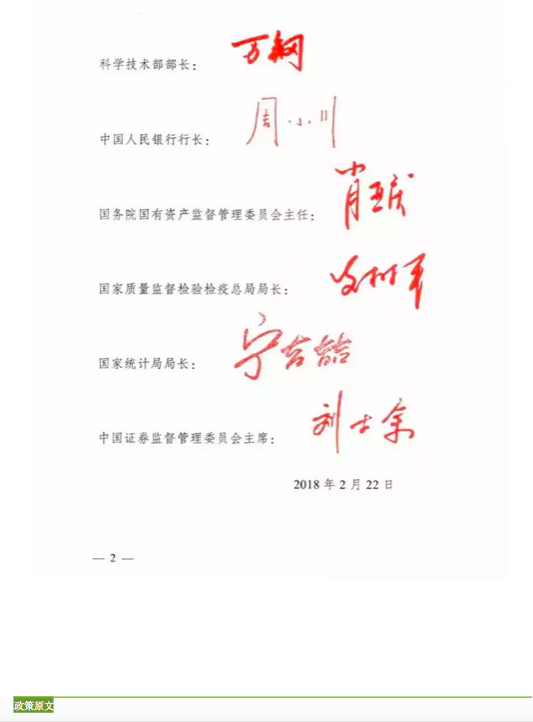 科学技术部部长: 万钢
中国人民银行行长: 周小川
国务院国有资产监督管理委员会主任: 肖亚庆
国家质量监督检验检疫总局局长: 支树平
国家统计局局长: 宁吉喆
中国证券监督管理委员会主席: 刘士余
2018 年 2 月 22 日
— 2 —
政策原文